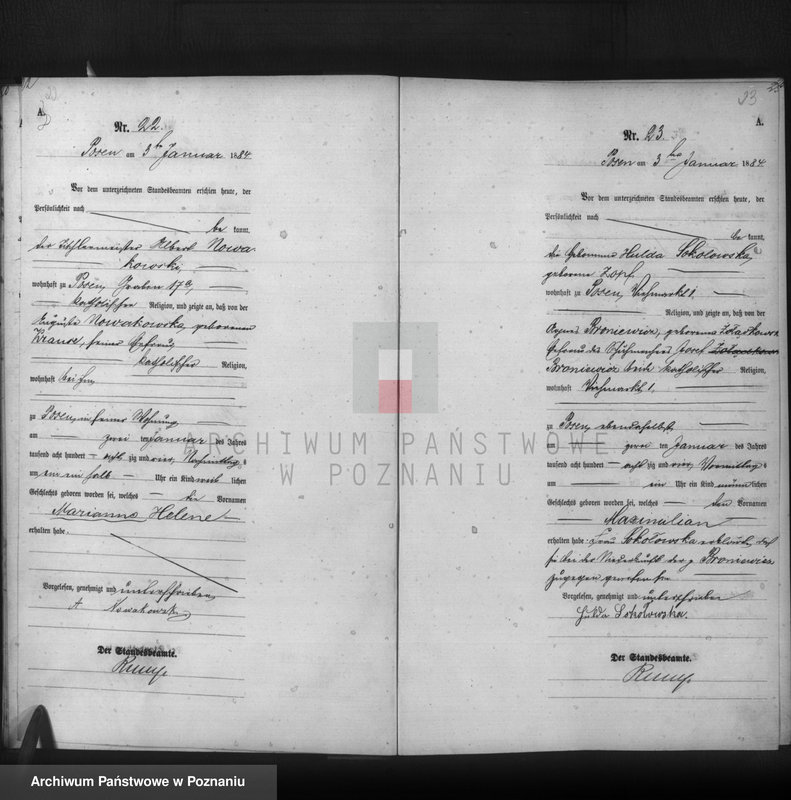 A.
Nr. 22.
Posen am 3ten Januar 1884
Vor dem unterzeichneten Standesbeamten erschien heute, der
Persönlichkeit nach
be kannt,
der Tischlermeister Albert Nowa-
kowski,
wohnhaft zu Posen, Graben
katholischer Religion, und zeigte an, daß von der
Auguste Nowakowska, geborenen
Krause, seiner Ehefrau
katholischer Religion,
wohnhaft bei ihm
zu Posen, in seiner Wohnung,
am zwei ten Januar des Jahres
tausend acht hundert acht zig und vier, Nachmittag s
um ein ein halb Uhr ein Kind weib lichen
Geschlechts geboren worden sei, welches die Vornamen
Marianna Helene
erhalten habe.
Vorgelesen, genehmigt und unterschrieben
A Nowakowski
Der Standesbeamte.
23
A.
Nr. 23.
Posen am 3ten Januar 1884.
Vor dem unterzeichneten Standesbeamten erschien heute, der
Persönlichkeit nach
be kannt,
die Hebamme Hulda Sokolowska,
geborene Zopf
wohnhaft zu Posen, Viehmarkt 1,
Religion, und zeigte an, daß von der
Agnes Broniewicz, geborene
Ehefrau des Schuhmachers Josef
Broniewicz beide katholischer Religion,
wohnhaft Viehmarkt 1,
zu Posen, ebendaselbst,
am zwei ten Januar des Jahres
tausend acht hundert acht zig und vier, Vormittag s
um ein Uhr ein Kind männ lichen
Geschlechts geboren worden sei, welches den Vornamen
Maximilian
erhalten habe. Frau Sokołowska erklärte, daß
sie bei der Niederkunft der p. Broniewicz
zugegen gewesen sei.
Vorgelesen, genehmigt und unterschrieben
Hulda Sokolowska.
Der Standesbeamte.
ARCHIWUM PAŃSTWOWE
W POZNANIU
Archiwum Państwowe w Poznaniu